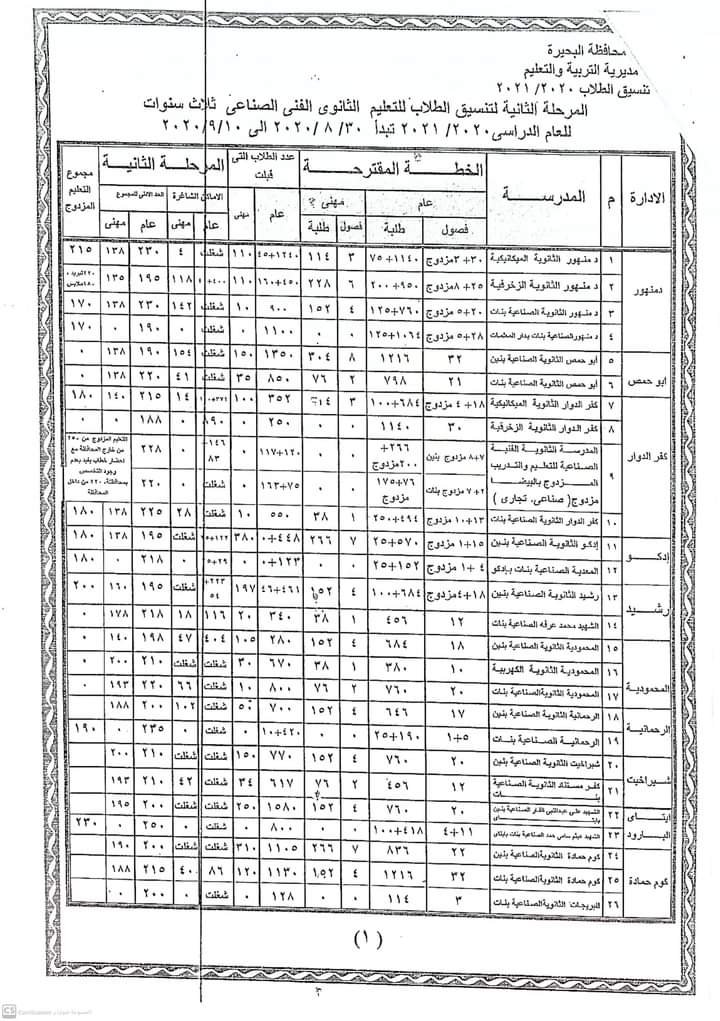 محافظة البحيرة
مديرية التربية والتعليم
تنسيق الطلاب ٢٠٢١/٢٠٢٠
المرحلة الثانية لتنسيق الطلاب للتعليم الثانوى الفنى الصناعى ثلاث سنوات
للعام الدراسى ٢٠٢١/٢٠٢٠ تبدأ ٢٠٢٠/٨/٣٠ الى ٢٠٢٠/٩/١٠
الادارة م المدرسة الخطة المقترحة عدد الطلاب التى قبلت المرحلة الثانية مجموع التعليم المزدوج
عام مهنى عام مهنى الاماكن الشاغرة الحد الادنى للمجموع
فصول طلبة فصول طلبة عام مهنى عام مهنى
دمنهور ١ دمنهور الثانوية الميكانيكية ٣٠+٣ مزدوج ١١٤٠+٧٥ ٣ ١١٤ ١٢٤٠+٤٥ ١١٠ شغلت ٤ ٢٣٠ ١٣٨ ٢١٥
٢ دمنهور الثانوية الزخرفية ٢٥+٨ مزدوج ٩٥٠+٢٠٠ ٦ ٢٢٨ ٤٥٠+١٦٠ ١١٠ ١١٨ ١٩٥ ١٣٥
٣ دمنهور الثانوية الصناعية بنات ٢٠+٥ مزدوج ٧٦٠+١٢٥ ٤ ١٥٢ ٩٠٠ ١٠ شغلت ١٤٢ ٢٣٠ ١٣٨ ١٧٠
٤ دمنهور الصناعية بنات بدار المعلمات ٢٨+٥ مزدوج ١٠٦٤+١٢٥ ٠ ٠ ١١٠٠ ٠ شغلت ٠ ١٩٠ ٠ ١٧٠
ابو حمص ٥ ابو حمص الثانوية الصناعية بنين ٣٢ ١٢١٦ ٨ ٣٠٤ ١٣٥٠ ١٥٠ شغلت ١٥٤ ١٩٠ ١٣٨ ٠
٦ ابو حمص الثانوية الصناعية بنات ٢١ ٧٩٨ ٢ ٧٦ ٨٥٠ ٣٥ شغلت ٤١ ٢٢٠ ١٣٨ ٠
كفر الدوار ٧ كفر الدوار الثانوية الميكانيكية ١٨+٤ مزدوج ٦٨٤+١٠٠ ٣ ٣٥٢ ١٠٠ ١٤ ٢١٥ ١٤٠ ١٨٠
٨ كفر الدوار الثانوية الزخرفية ٣٠ ١١٤٠ ٠ ٠ ٢٥٠ ٠ ٨٩٠ ٠ ١٨٨ ٠ ٠
٩ المدرسة الثانوية الفنية الصناعية للتعليم والتدريب المزدوج بالبيضا مزدوج( صناعى، تجارى )
٧+٨ مزدوج بنين ٢٦٦+ ٢٠٠ مزدوج ٠ ٠ ١٢٠+١١٧ ٠ ١٤٦+ ٨٣ ٠ ٢٢٨ ٠ التعليم المزدوج من ٢٥٠ من خارج المحافظة مع احضار خطاب يفيد بعدم وجود التخصص بمحافظته، ٢٢٠ من داخل المحافظة
٢+٧ مزدوج بنات ٧٦+١٧٥ مزدوج ٠ ٠ ٧٥+١٦٣ ٠ شغلت ٠ ٢٢٠ ٠
١٠ كفر الدوار الثانوية الصناعية بنات ١٣+١٠ مزدوج ٤٩٤+٢٥٠ ١ ٣٨ ٥٥٠ ١٠ شغلت ٢٨ ٢٢٥ ١٣٨ ١٨٠
إدكو ١١ إدكو الثانوية الصناعية بنين ١٥+١ مزدوج ٥٧٠+٢٥ ٧ ٢٦٦ ٤٤٨+٠ ٣٨٠ شغلت ١٩٥ ١٣٨ ١٨٠
١٢ المعدية الصناعية بنات بإدكو ٤+١ مزدوج ١٥٢+٢٥ ٠ ٠ ١٢٣+٠ ٠ ٢٩+٢٥ ٠ ٢١٨ ٠ ١٨٠
رشيد ١٣ رشيد الثانوية الصناعية بنين ١٨+٤ مزدوج ٦٨٤+١٠٠ ٤ ١٥٢ ٤٦١+٤٦ ١٩٧ ٢٢٣+ ٥٤ شغلت ١٩٥ ١٦٠ ٢٠٠
١٤ الشهيد محمد عرفه الصناعية بنات ١٢ ٤٥٦ ١ ٣٨ ٣٤٠ ٢٠ ١١٦ ١٨ ٢١٨ ١٧٨ ٠
المحمودية ١٥ المحمودية الثانوية الصناعية بنين ١٨ ٦٨٤ ٤ ١٥٢ ٢٨٠ ١٠٥ ٤٠٤ ٤٧ ١٩٨ ١٤٠ ٠
١٦ المحمودية الثانوية الكهربية ١٠ ٣٨٠ ١ ٣٨ ٦٧٠ ٣٠ شغلت شغلت ٢١٠ ٢٠٠ ٠
١٧ المحمودية الثانوية الصناعية بنات ٢٠ ٧٦٠ ٢ ٧٦ ٨٠٠ ١٠ شغلت ٦٦ ٢٢٠ ١٩٣ ٠
الرحمانية ١٨ الرحمانية الثانوية الصناعية بنين ١٧ ٦٤٦ ٤ ١٥٢ ٧٠٠ ٥٠ شغلت ١٠٢ ٢٠٠ ١٨٨
١٩ الرحمانية الصناعية بنات ٥+١ ١٩٠+٢٥ ٠ ٠ ٤٢٠+١٠ ٠ شغلت ٠ ٢٣٥ ٠ ١٩٠
شبراخيت ٢٠ شبراخيت الثانوية الصناعية بنين ٢٠ ٧٦٠ ٤ ١٥٢ ٧٧٠ ١٥٠ شغلت شغلت ٢١٠ ٢٠٠
٢١ كفر مستناد الثانوية الصناعية بنات ١٢ ٤٥٦ ٢ ٧٦ ٦١٧ ٣٤ شغلت ٤٢ ٢١٠ ١٩٣
ايتاى البارود ٢٢ الصناعية بنين بايتاى ٢٠ ٧٦٠ ٤ ١٥٢ ١٥٨٠ ٢٥٠ شغلت شغلت ٢٠٠ ١٩٥
٢٣ الصناعية بنات بايتاى ١١+٤ ٤١٨+١٠٠ ٠ ٠ ٨٠٠ ٠ شغلت ٠ ٢٥٠ ٠ ٢٣٠
كوم حمادة ٢٤ كوم حمادة الثانوية الصناعية بنين ٢٢ ٨٣٦ ٧ ٢٦٦ ١١٠٥ ٣١٠ شغلت شغلت ٢٠٠ ١٩٠
٢٥ كوم حمادة الثانوية الصناعية بنات ٣٢ ١٢١٦ ٤ ١٥٢ ١١٣٠ ١٢٠ ٨٦ ٤٠ ٢١٥ ١٨٨
٢٦ البريجات الثانوية الصناعية بنات ٣ ١١٤ ٠ ٠ ١٢٨ ٠ شغلت ٠ ٢٠٠ ٠
(١)
٣
CS CamScanner